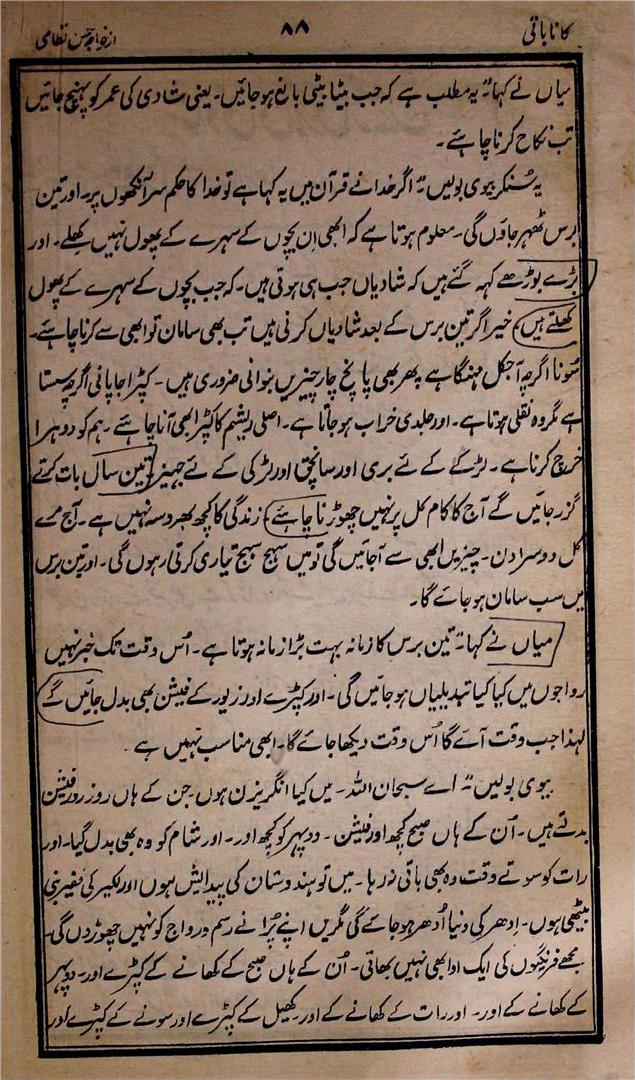 کانا باقی
۸۸
از خواجہ حسن نظامی
میاں نے کہا۔" یہ مطلب ہے کہ جب بیٹا بیٹی بالغ ہو جائیں۔ یعنی شادی کی عمر کو پہنچ جائیں
تب نکاح کرنا چاہئے۔
یہ سُنکر بیوی بولیں۔" اگر خدا نے قرآن میں یہ کہا ہے تو خدا کا حکم سر آنکھوں پر۔ اور تین
برس ٹھہر جاؤں گی۔ معلوم ہوتا ہے کہ ابھی اِن بچوں کے سہرے کے پھول نہیں کِھلے۔ اور
بڑے بوڑھے کہہ گئے ہیں کہ شادیاں جب ہی ہوتی ہیں۔ کہ جب بچوں کے سہرے کے پھول
کھلتے ہیں) خیر اگر تین برس کے بعد شادیاں کرنی ہیں تب بھی سامان تو ابھی سے کرنا چاہئے۔
سونا اگرچہ آجکل مہنگا ہے پھر بھی پانچ چار چیزیں بنوانی ضروری ہیں۔ کپڑا جاپانی اگرچہ سستا
ہے مگر وہ نقلی ہوتا ہے۔ اور جلدی خراب ہو جاتا ہے۔ اصلی ریشم کا کپڑا بھی آنا چاہئے۔ ہم کو دوہرا
خرچ کرنا ہے۔ لڑکے کے لئے بری اور سانچق اور لڑکی کے لئے جہیز تین سال بات کرتے
گزر جائیں گے آج کا کام کل پر نہیں چھوڑنا چاہئے) زندگی کا کچھ بھروسہ نہیں ہے۔ آج مرے
کل دوسرا دن۔ چیزیں ابھی سے آجائیں گی تو میں سہج سہج تیاری کرتی رہوں گی۔ اور تین برس
میں سب سامان ہو جائے گا۔
میاں نے کہا۔" تین برس کا زمانہ بہت بڑا زمانہ ہوتا ہے۔ اُس وقت تک خبر نہیں
رواجوں میں کیا کیا تبدیلیاں ہو جائیں گی۔ اور کپڑے اور زیور کے فیشن بھی بدل جائیں گے
لہذا جب وقت آئے گا اُس وقت دیکھا جائے گا۔ ابھی مناسب نہیں ہے۔
بیوی بولیں۔" اے سبحان اللہ۔ میں کیا انگریزن ہوں۔ جن کے ہاں روز روز فیشن
بدلتے ہیں۔ اُن کے ہاں صبح کچھ اور فیشن۔ دوپہر کو کچھ اور۔ اور شام کو وہ بھی بدل گیا۔ اور
رات کو سوتے وقت وہ بھی باقی نہ رہا۔ میں تو ہندوستان کی پیدائش ہوں اور لکیر کی فقیر بنی
بیٹھی ہوں۔ اِدھر کی دنیا اُدھر ہو جائے گی مگر میں اپنے پُرانے رسم و رواج کو نہیں چھوڑوں گی۔
مجھے فرنگنوں کی ایک ادا بھی نہیں بھاتی۔ اُن کے ہاں صبح کے کھانے کے کپڑے اور۔ دوپہر
کے کھانے کے اور۔ اور رات کے کھانے کے اور۔ کھیل کے کپڑے اور سونے کے کپڑے اور